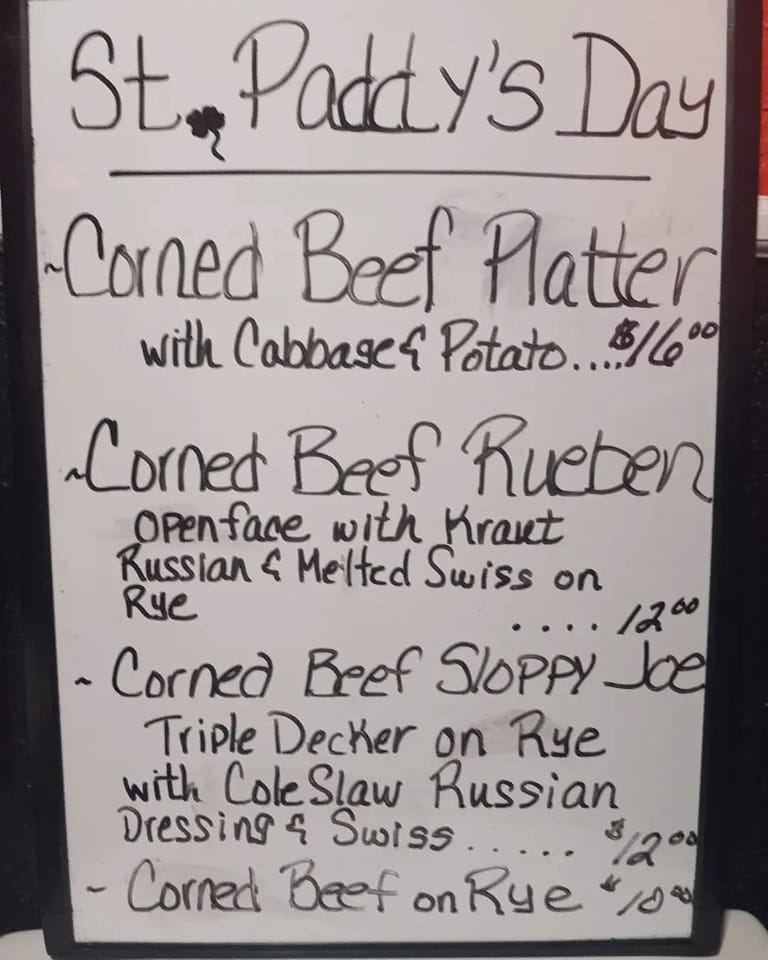 St. Paddy's Day
~Corned Beef Platter
with Cabbage & Potato....$16.00
~Corned Beef Rueben
open face with Kraut
Russian & Melted Swiss on
Rye
.... 12.00
~ Corned Beef Sloppy Joe
Triple Decker on Rye
with Cole Slaw Russian
Dressing & Swiss...... $12.00
~ Corned Beef on Rye $10.00